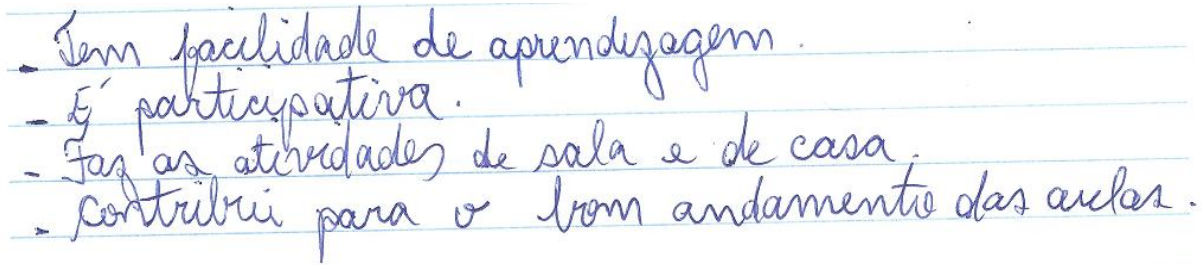 - Tem facilidade de aprendizagem.
- É participativa.
- Faz as atividades de sala e de casa.
- Contribui para o bom andamento das aulas.